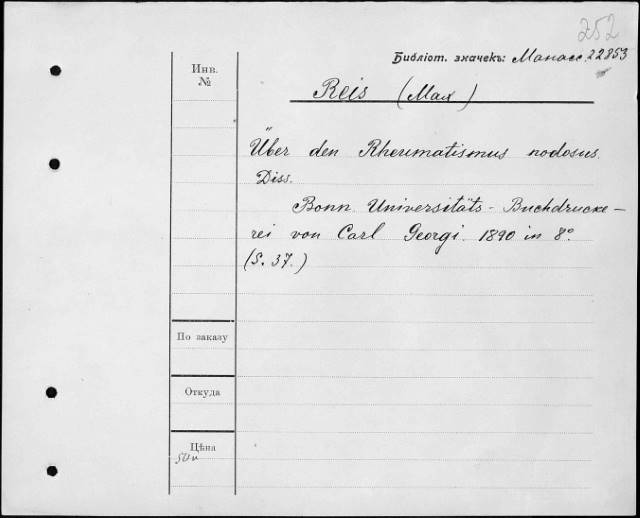 252
Библіот. значекъ: Манасс. 22853
Инв.
№
Reis (Max)
Über den Rheumatismus nodosus.
Diss.
Bonn. Universitäts-Buchdrucke-
rei von Carl Georgi. 1890 in 8°.
(S. 37.)
По заказу
Откуда
Цѣна